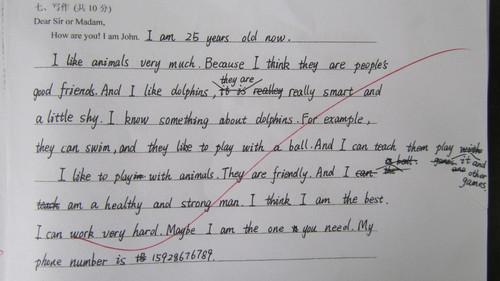 七、写作 (共 10 分)
Dear Sir or Madam,
How are you! I am John. I am 25 years old now.
I like animals very much. Because I think they are people's
they are
good friends. And I like dolphins, it is realley really smart and
a little shy. I know something about dolphins. For example,
they can swim, and they like to play with a ball. And I can teach them play
a ball games it and
I like to play in with animals. They are friendly. And I can the other
games
teach am a healthy and strong man. I think I am the best.
I can work very hard. Maybe I am the one you need. My
phone number is 15928676789.